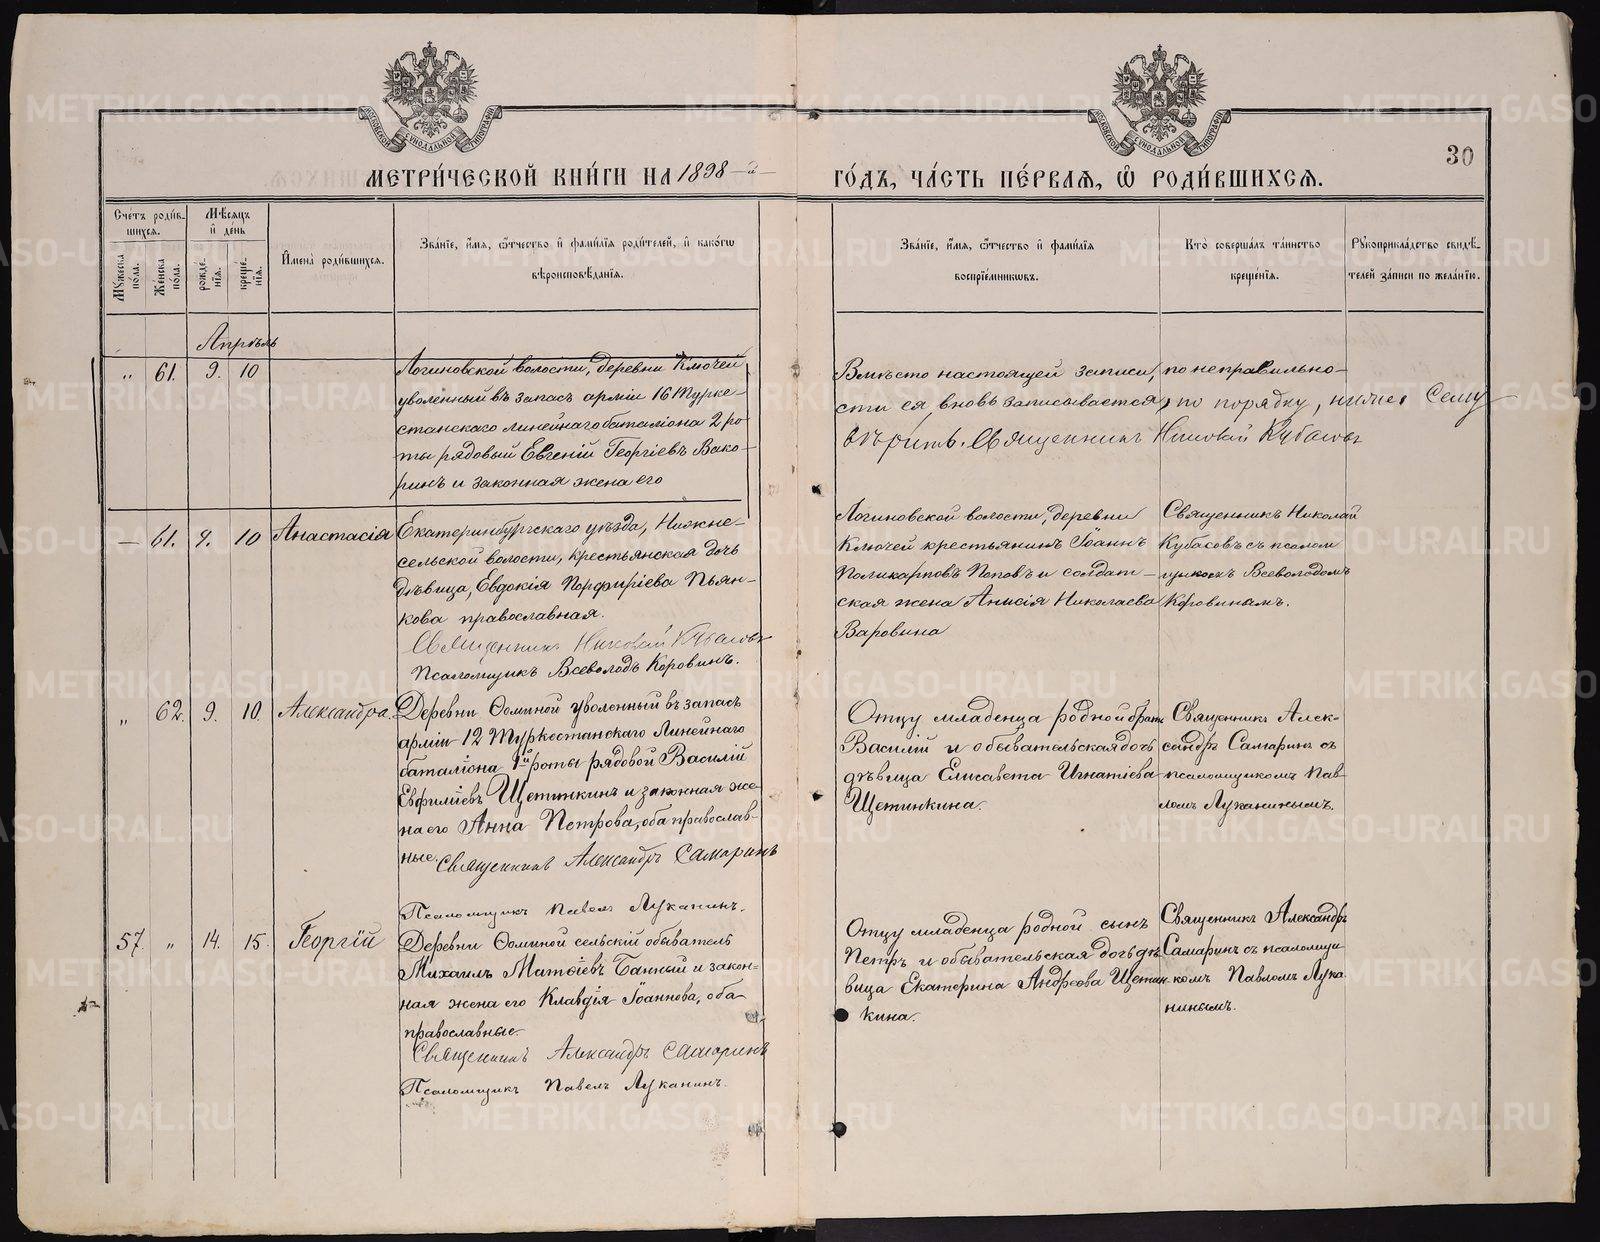 МЕТРИ́ЧЕСКОЙ КНИ́ГИ НА 1898-й
ГО́ДЪ, ЧА́СТЬ ПЕ́РВАѦ, Ѡ҆ РОДИ́ВШИХСѦ.
30
МОСКОВСКОЙ СѴНОДАЛЬНОЙ ТИПОГРАФІИ
МОСКОВСКОЙ СѴНОДАЛЬНОЙ ТИПОГРАФІИ
Сче́тъ роди́в-
шихсѧ.
Мꙋ́жеска
по́ла.
Же́нска
по́ла.
Мѣ́сѧцъ
и҆ де́нь
рожде́-
нїѧ.
креще́-
нїѧ.
И҆мена̀ роди́вшихсѧ.
Зва́нїе, и҆́мѧ, ѻ҆́тчество и҆ фами́лїѧ роди́телей, и҆ како́гѡ
вѣроисповѣ́данїѧ.
Зва́нїе, и҆́мѧ, ѻ҆́тчество и҆ фами́лїѧ
воспрїе́мникѡвъ.
Кто̀ соверша́лъ та́инство
креще́нїѧ.
Рꙋкоприкла́дство свидѣ́-
телей за́писи по жела́нїю.
Апрѣль
" 61. 9. 10
Логиновской волости, деревни Ключей
уволенный въ запасъ арміи 16 Турке-
станскаго линейнаго баталіона 2 ро-
ты рядовый Евгеній Георгіевъ Вако-
ринъ и законная жена его
Вмѣсто настоящей записи, по неправильно-
сти ея вновь записывается, по порядку, ниже. Сему
вѣрить. Священникъ Николай Кубасовъ
— 61. 9. 10 Анастасія
Екатеринбургскаго уѣзда, Нижне-
сельской волости, крестьянская дочь
дѣвица, Евдокія Порфиріева Пьян-
кова православная.
Священникъ Николай Кубасовъ
Псаломщикъ Всеволодъ Коровинъ.
Логиновской волости, деревни
Ключей крестьянинъ Іоаннъ
Поликарповъ Поповъ и солдат-
ская жена Анисія Николаева
Варовина
Священникъ Николай
Кубасовъ съ псалом
щикомъ Всеволодомъ
Коровинымъ.
" 62. 9. 10. Александра.
Деревни Ѳоминой уволенный въ запасъ
арміи 12 Туркестанскаго Линейнаго
баталіона 1й роты рядовой Василій
Евфиміевъ Щетинкинъ и законная же-
на его Анна Петрова, оба православ-
ные. Священникъ Александръ Самаринъ
Псаломщикъ Павелъ Луканинъ.
Отцу младенца родной братъ
Василій и обывательская дочь
дѣвица Елисавета Игнатіева
Щетинкина.
Священникъ Алек-
сандръ Самаринъ съ
псаломщикомъ Пав-
ломъ Луканинымъ.
57. " 14. 15. Георгій
Деревни Ѳоминой сельскій обыватель
Михаилъ Матѳіевъ Банный и закон-
ная жена его Клавдія Іоаннова, оба
православные.
Священникъ Александръ Самаринъ
Псаломщикъ Павелъ Луканинъ.
Отцу младенца родной сынъ
Петръ и обывательская дочь дѣ-
вица Екатерина Андреева Щетин-
кина.
Священникъ Александръ
Самаринъ съ псаломщи-
комъ Павломъ Лука-
нинымъ.
METRIKI.GASO-URAL.RU